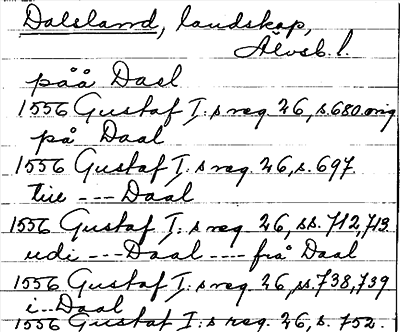 Dalsland, landskap,
Älvsb. l.
påå Dasl
1556 Gustaf I:s reg. 26, s. 680. orig
på Daal
1556 Gustaf I:s reg. 26, s. 697.
till --- Daal
1556 Gustaf I:s reg. 26, ss. 712, 713.
udi --- Daal --- frå Daal
1556 Gustaf I:s reg. 26, ss. 738, 739
i .. Daal
1556 Gustaf I:s reg. 26, s. 752.